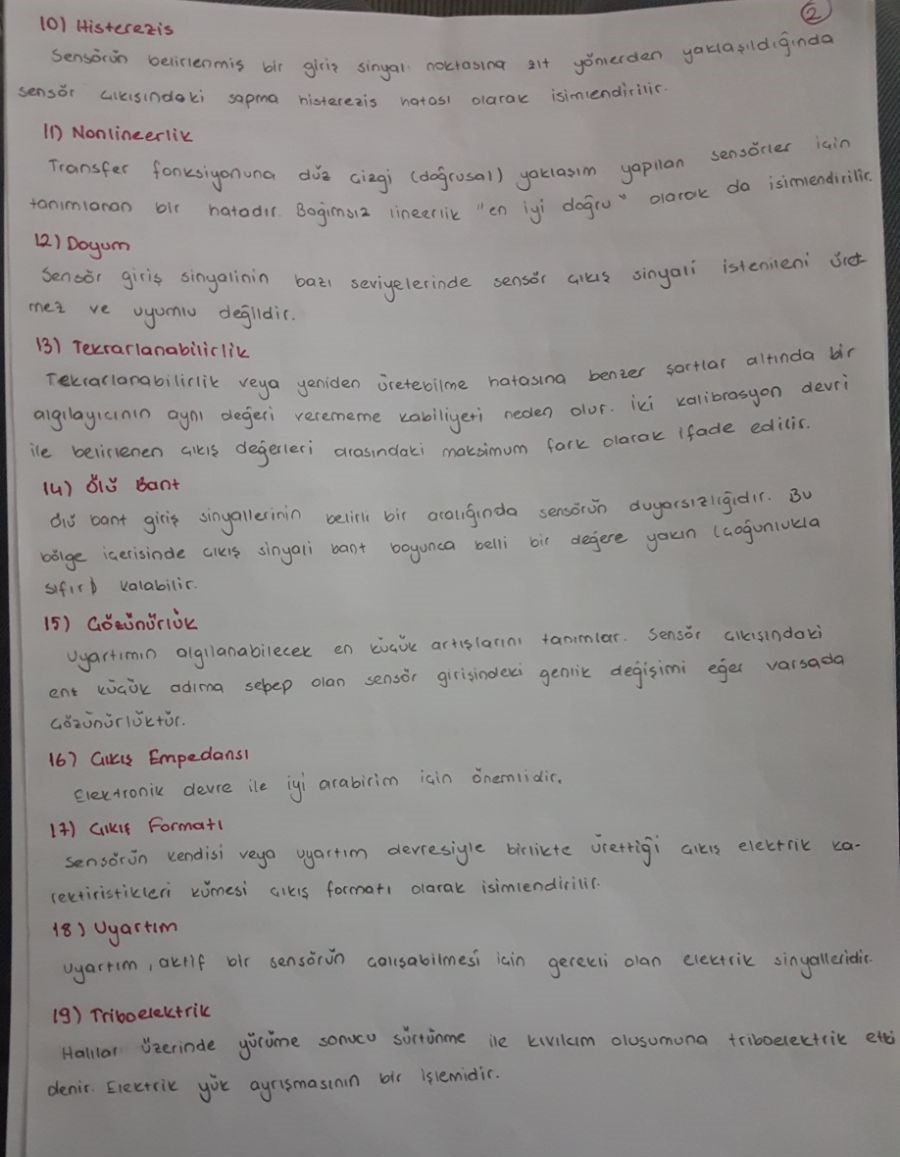 2
10) Histerezis
Sensörün belirlenmiş bir giriş sinyal noktasına zıt yönlerden yaklaşıldığında
sensör çıkışındaki sapma histerezis hatası olarak isimlendirilir.
11) Nonlineerlik
Transfer fonksiyonuna düz çizgi (doğrusal) yaklaşım yapılan sensörler için
tanımlanan bir hatadır. Bağımsız lineerlik "en iyi doğru" olarak da isimlendirilir.
12) Doyum
Sensör giriş sinyalinin bazı seviyelerinde sensör çıkış sinyali istenileni üret
mez ve uyumlu değildir.
13) Tekrarlanabilirlik
Tekrarlanabilirlik veya yeniden üretebilme hatasına benzer şartlar altında bir
algılayıcının aynı değeri verememe kabiliyeti neden olur. İki kalibrasyon devri
ile belirlenen çıkış değerleri arasındaki maksimum fark olarak ifade edilir.
14) Ölü Bant
Ölü bant giriş sinyallerinin belirli bir aralığında sensörün duyarsızlığıdır. Bu
bölge içerisinde çıkış sinyali bant boyunca belli bir değere yakın (çoğunlukla
sıfır) kalabilir.
15) Çözünürlük
Uyartımın algılanabilecek en küçük artışlarını tanımlar. Sensör çıkışındaki
ent küçük adıma sebep olan sensör girişindeki genlik değişimi eğer varsada
çözünürlüktür.
16) Çıkış Empedansı
Elektronik devre ile iyi arabirim için önemlidir.
17) Çıkış Formatı
Sensörün kendisi veya uyartım devresiyle birlikte ürettiği çıkış elektrik ka-
rektiristikleri kümesi çıkış formatı olarak isimlendirilir.
18) Uyartım
Uyartım, aktif bir sensörün çalışabilmesi için gerekli olan elektrik sinyalleridir.
19) Triboelektrik
Halılar üzerinde yürüme sonucu sürtünme ile kıvılcım oluşumuna triboelektrik etki
denir. Elektrik yük ayrışmasının bir işlemidir.